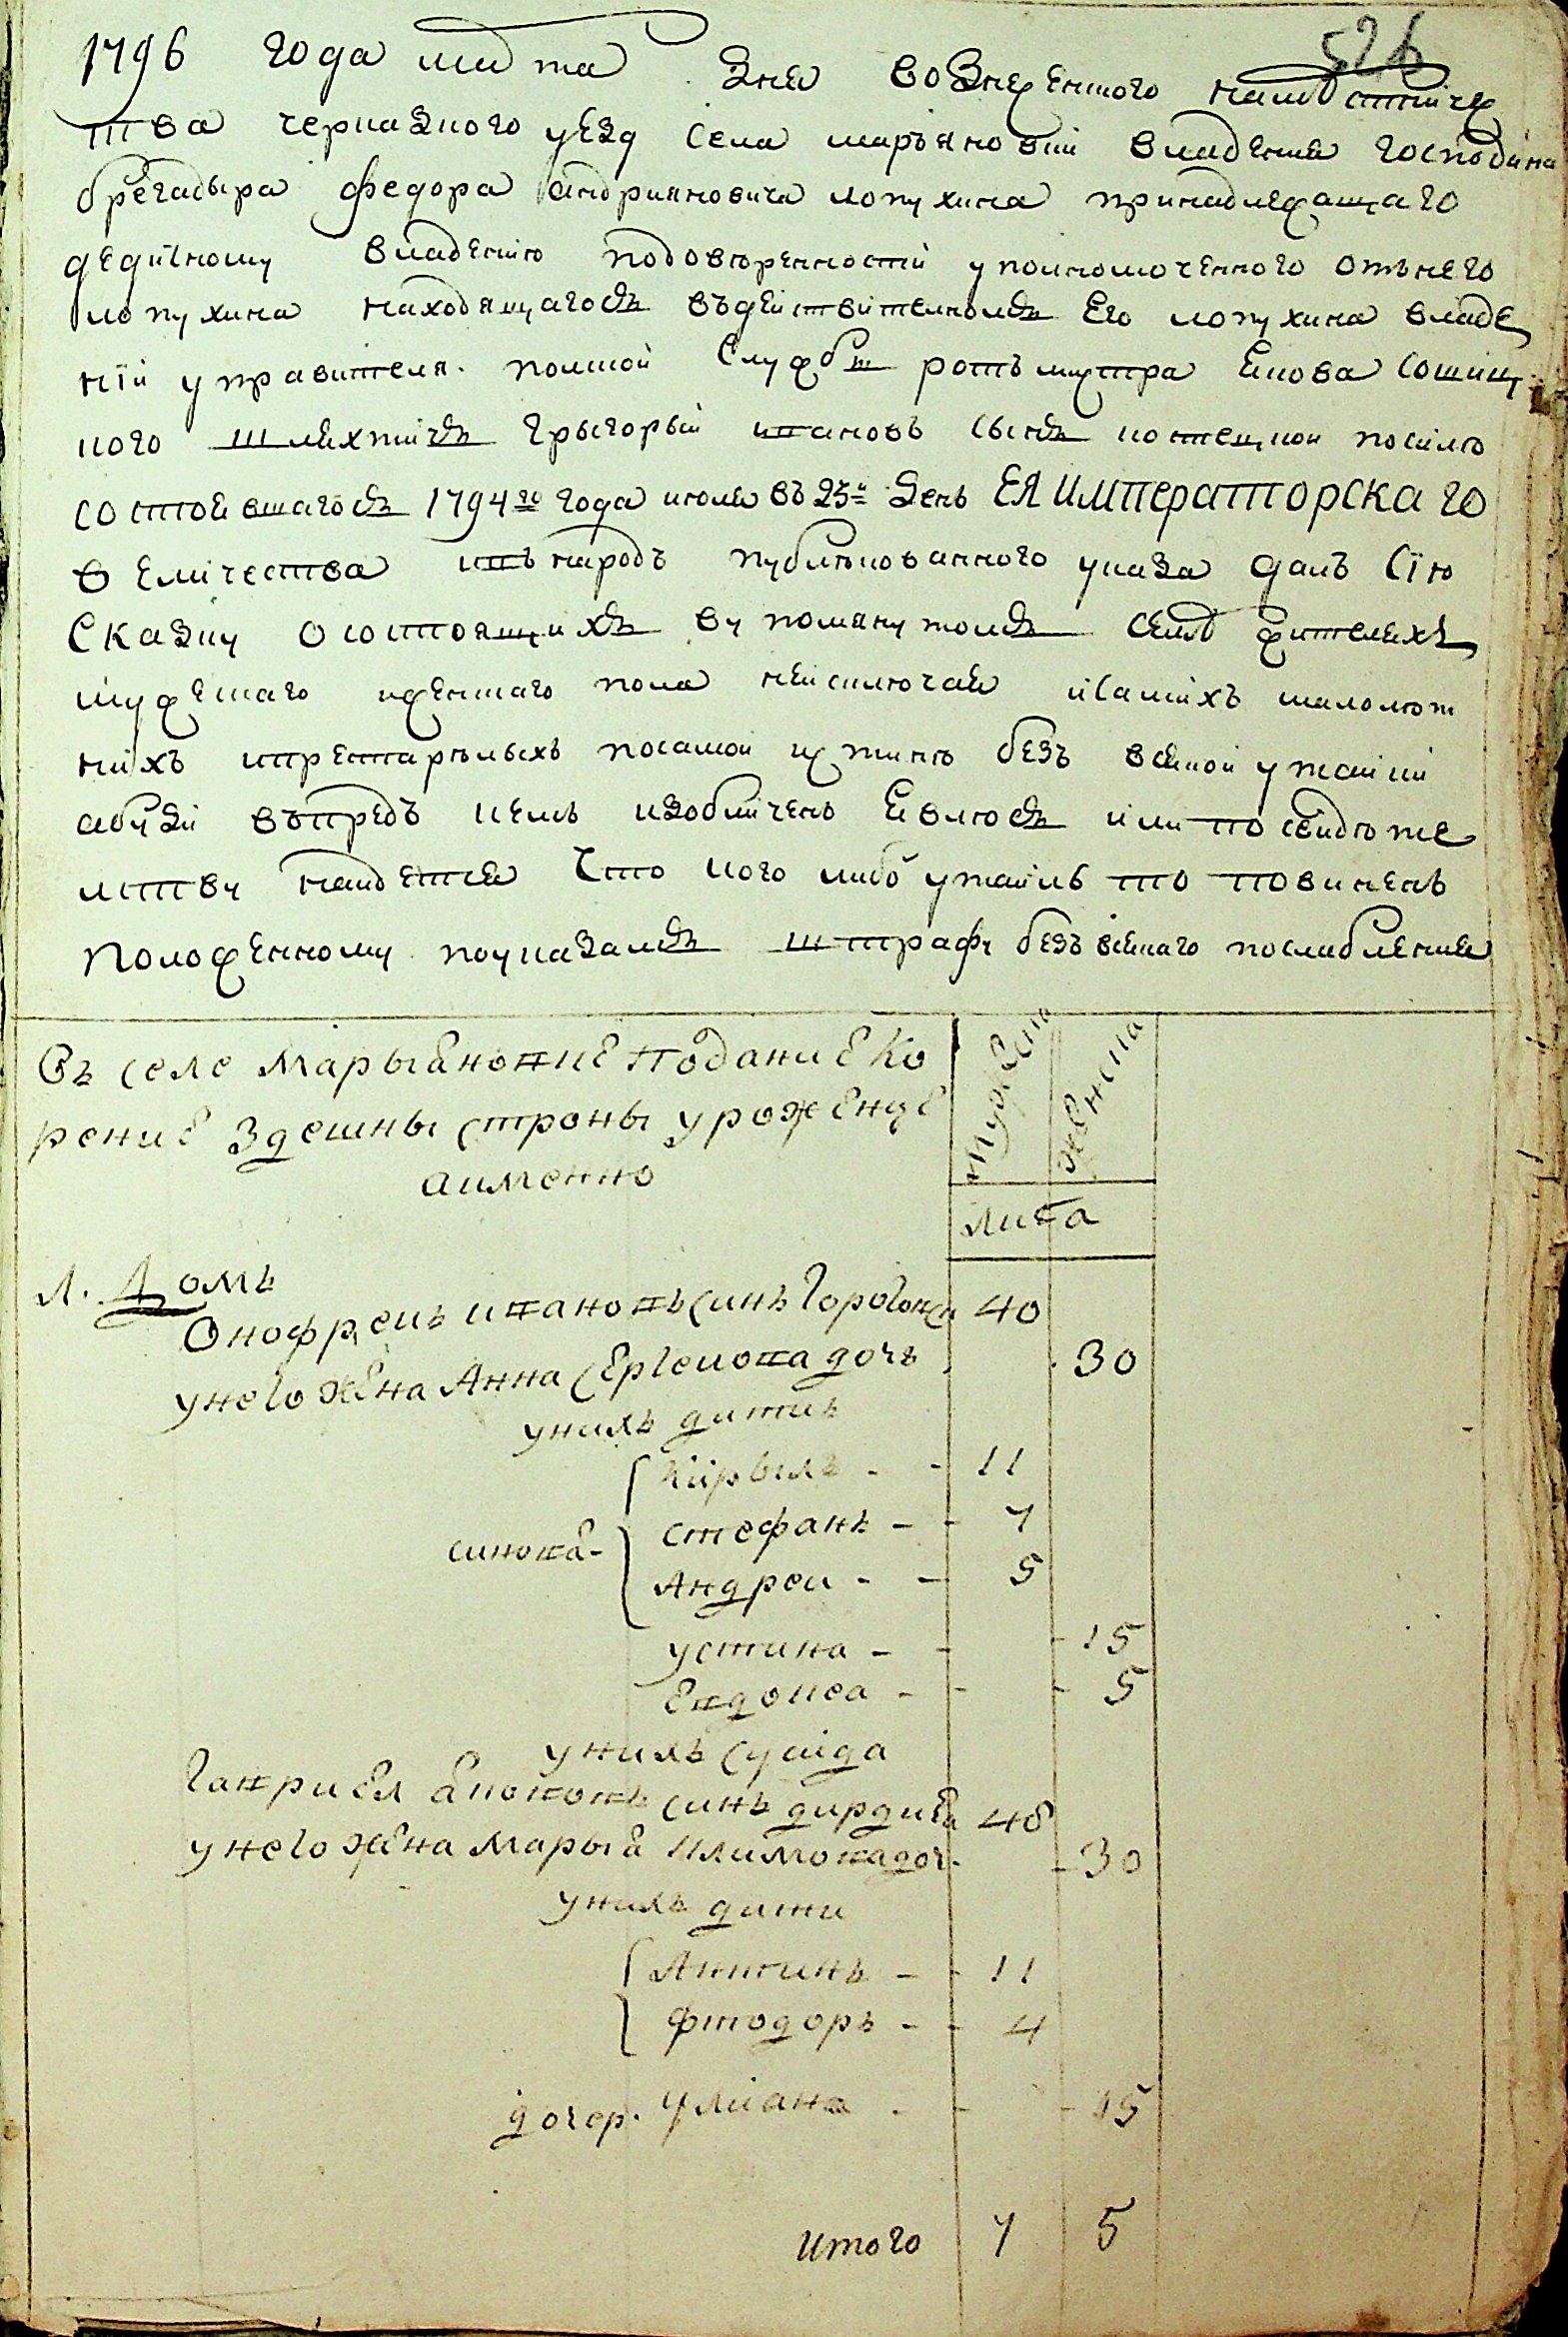 526
1796 года мца дня вознесенского наместничес
тва черказкого уезду села марьяновки владения господина
брегадыра федора андрияновича лопухина принадлежащаго
дедичному владению подоверенности уполномоченного отънего
лопухина находящагось въдействителномъ его лопухина владе
нїи управителя полской службы ротъмистра якова сошин
ского шляхтичъ грыгорый ивановъ сынъ костецкои посилю
состоявшагось 1794го года июля въ 23й день ЕЯ императорскаго
величества въ народъ публикованного указа далъ сїю
сказку осостоящихъ въ помянутомъ селе жителехъ
мужескаго иженскаго пола неисключая исамихъ малолет
нихъ ипрестарелыхъ посамой истине безъ всякой утайки
абуди въпредъ кемъ изобличенъ явлюсь или по свидете
лству найдется что кого либо утаилъ то повиненъ
положенному поуказамъ штрафу безъ всякаго послабления
Въ селе марыяновке подание ко
рение здешны строны уроженце
аименно
мужеска
женска
лита
1. домъ
Онофреи ивановъ синъ горо 40
унего жена Анна Сергеиова дочъ 30
унихъ дити
кирылъ - - 11
синова - стефанъ - - 7
Андреи - - 5
устина - - - 15
Евдокеа - - - 5
унихъ сусида
гавриел якововъ синъ дирдия 48
унего жена марыя климова доч. - 30
унихъ дити
Антинъ - - 11
фтодоръ - - 4
дочер. улиана - - - 15
Итого 7 5